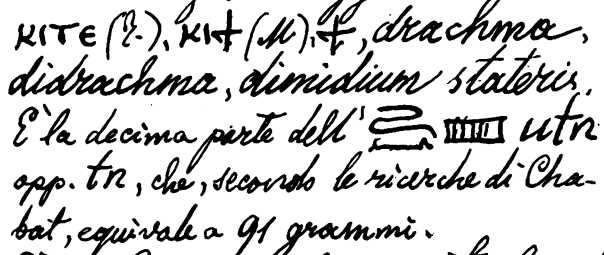 ⲕⲓⲧⲉ, ⲕⲓϯ (M), ϯ, drachma,
didrachma, dimidium stateris.
È la decima parte dell' utn
opp. tn, che, secondo le ricerche di Cha-
bat, equivale a 91 grammi.